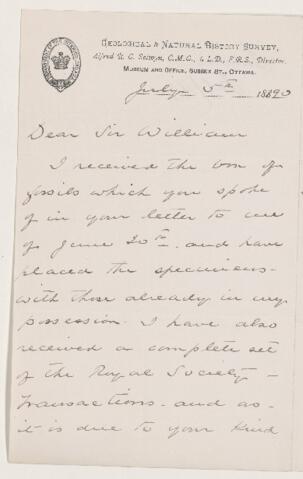 GEOLOGICAL & NATURAL HISTORY SURVEY,
Alfred R. C. Selwyn, C.M.G., L.L.D., F.R.S., Director.
MUSEUM AND OFFICE, SUSSEX ST., OTTAWA.
July 5th 1890
Dear Sir William
I received the box of
fossils which you spoke
of in your letter to me
of June 30th and have
placed the specimens
with those already in my
possession. I have also
received a complete set
of the Royal Society
Transactions and as
it is due to your kind